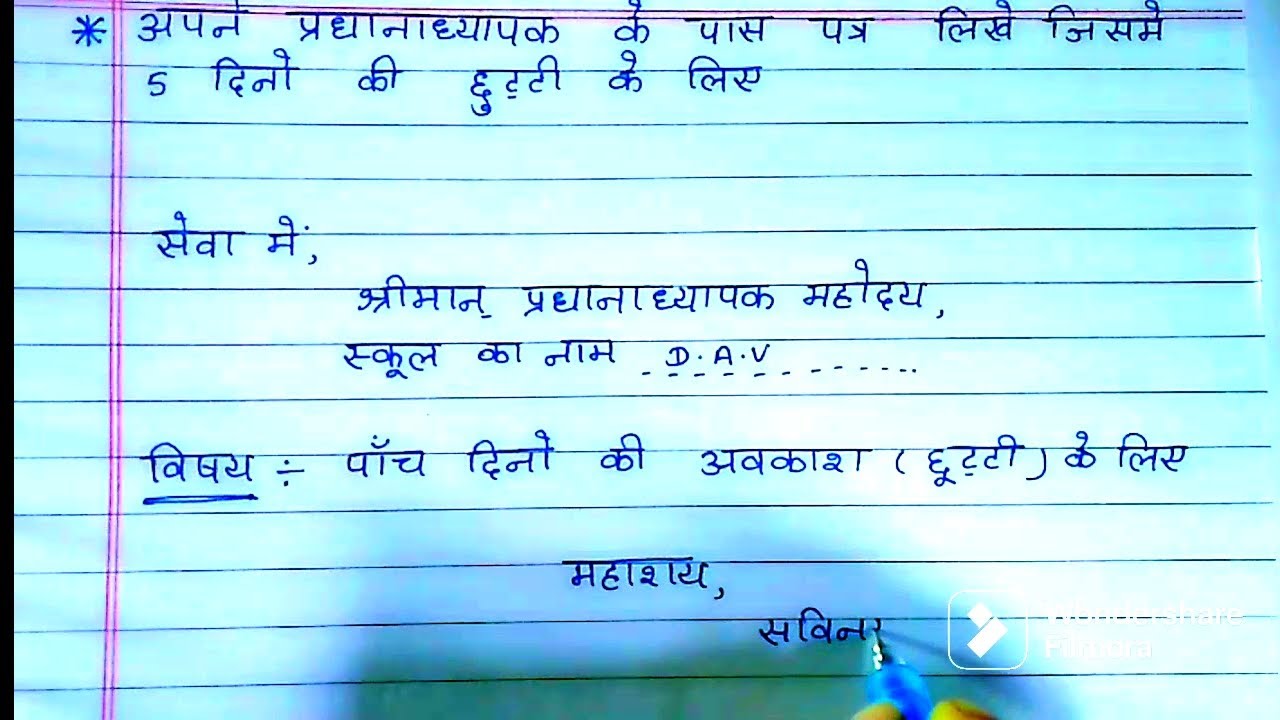 * अपने प्रधानाध्यापक के पास पत्र लिखे जिसमे
5 दिनो की छुट्टी के लिए
सेवा में,
श्रीमान् प्रधानाध्यापक महोदय,
स्कूल का नाम D.A.V
विषय ÷ पाँच दिनो की अवकाश (छूट्टी) के लिए
महाशय,
सविनय
Wondershare
Filmora